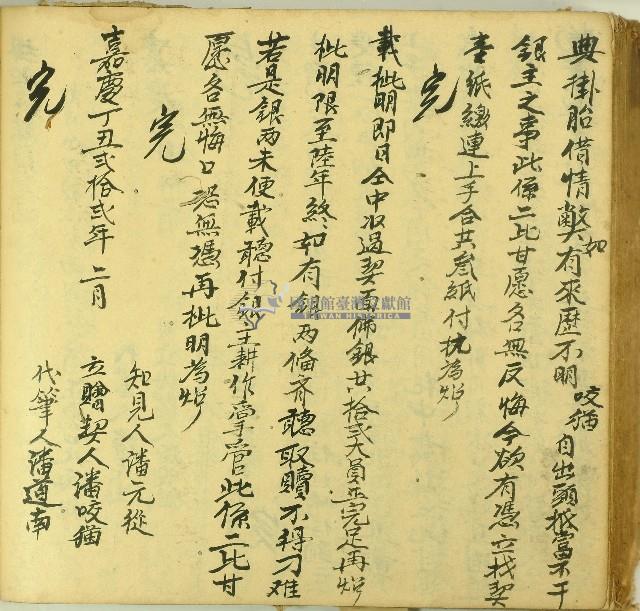 典掛胎借情獘如有來歷不明咬猫自出頭抵當不干
銀主之事此係二比甘愿各無反悔今欲有憑立找契
壹紙繳連上手合共叁紙付执為炤
完
載批明即日仝中收過契面佛銀共拾弍大員正完足再炤
批明限至陸年終如有銀两偹齐聽取贖不得刁难
若是銀两未便載聽付銀主耕作掌管此係二比甘
愿各無悔口恐無憑再批明為炤
完
嘉慶丁丑弍拾弍年二月
知見人潘元從
立贈契人潘咬猫
代筆人潘道南
完
國史館臺灣文獻館
TAIWAN HISTORICA